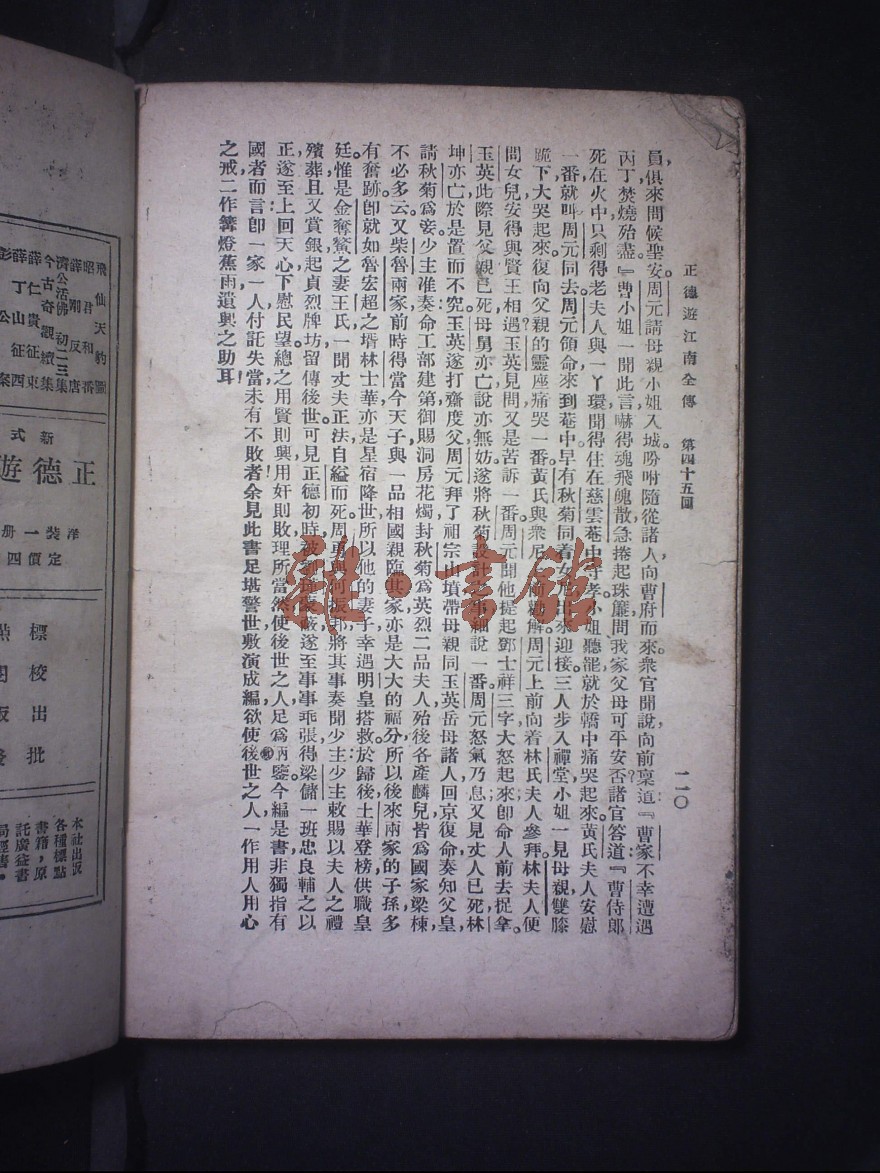 正德遊江南全傳　第四十五回
一一〇
員，俱來問候聖安，周元請母親小姐入城，吩咐隨從諸人，向曹府而來。衆官聞說，向前稟道：『曹家不幸遭遇
丙丁，焚燒殆盡。』曹小姐一聞此言，嚇得魂飛魄散，急捲起珠簾，問我家父母可平安否？諸官答道：『曹侍郎
死在火中，只剩得老夫人與一丫環，聞得住在慈雲菴中守孝。小姐聽罷，就於轎中痛哭起來，黃氏夫人安慰
一番，就叫周元同去，周元領命，來到菴中，早有秋菊同着女尼出來迎接，三人步入禪堂，小姐一見母親，雙膝
跪下，大哭起來，復向父親的靈座痛哭一番，黃氏與衆尼 勸解，周元上前，向着林氏夫人參拜，林夫人便
問女兒安得與賢王相遇，玉英見問，又是苦訴一番，周元聞他提起鄧士祥三字，大怒起來，卽命人前去捉拿。
玉英此際見父親已死，母舅亦亡，說亦無妨，遂將秋菊設計之事細說一番，周元怒氣乃息，又見丈人已死，林
坤亦亡，於是置而不究。玉英遂打齋度父，周元拜了祖宗山墳，帶母親同玉英岳母諸人回京復命，奏知父皇，
請秋菊爲妾，少主准奏，命工部建第，御賜洞房花燭，封秋菊爲英烈二品夫人，殆後各產麟兒，皆爲國家梁棟，
不必多云。又柴魯兩家，前時得當今天子與一品相國親臨其家，亦是大大的福分，所以後來兩家的子孫，多
有奮跡，卽就如魯宏超之壻林士華，亦是星宿降世，所以他的妻子，幸遇明皇搭救，於歸後，士華登榜，供職皇
廷。惟是金奪鰲之妻王氏，一聞丈夫正法，自縊而死，周勇與何振邦將其事奏聞少主，少主敕賜以夫人之禮
殯葬，且又賞銀起貞烈牌坊，留傳後世。可見正德初時，被劉瑾蒙蔽，遂至事事乖張，得梁儲一班忠良輔之以
正，遂至上回天心，下慰民望，總之用賢則興，用奸則敗，理所當然，使後世之人，足爲炯鑒，今編是書，非獨指有
國者而言，卽一家一人，付託失當，未有不敗者，余見此書，足堪警世，敷演成編，欲使後世之人，一作用人用心
之戒，二作篝燈蕉雨遣興之助耳！
雜·書館
飛仙天豹圖
昭君和番
薛剛反唐
濟公活佛初二三集
今古奇觀續集
薛仁貴征東
薛丁山征西
彭公案
新式
正德遊
洋裝一册
定價四
標
校
出
批
本社出版
各種標點
書籍，原
託廣益書
局經售。